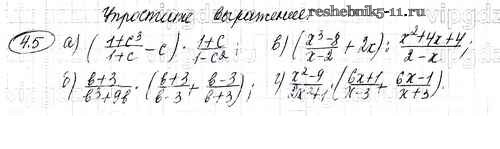 Упростите выражение
reshebnik5-11.ru
4.5 а) ((1+c³)/(1+c) - c) · (1+c)/(1-c²); в) ((x³-8)/(x-2) + 2x) : (x²+4x+4)/(2-x);
б) (в+3)/(в³+9в) · ((в+3)/(в-3) + (в-3)/(в+3)); г) (x²-9)/(2x²+1) · ((6x+1)/(x-3) + (6x-1)/(x+3)).